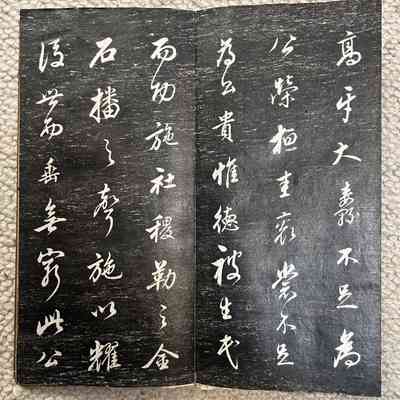 高牙大纛不足為
公榮桓圭袞裳不足
為公貴惟德被生民
而功施社稷勒之金
石播之聲施以耀
後世而垂無窮此公